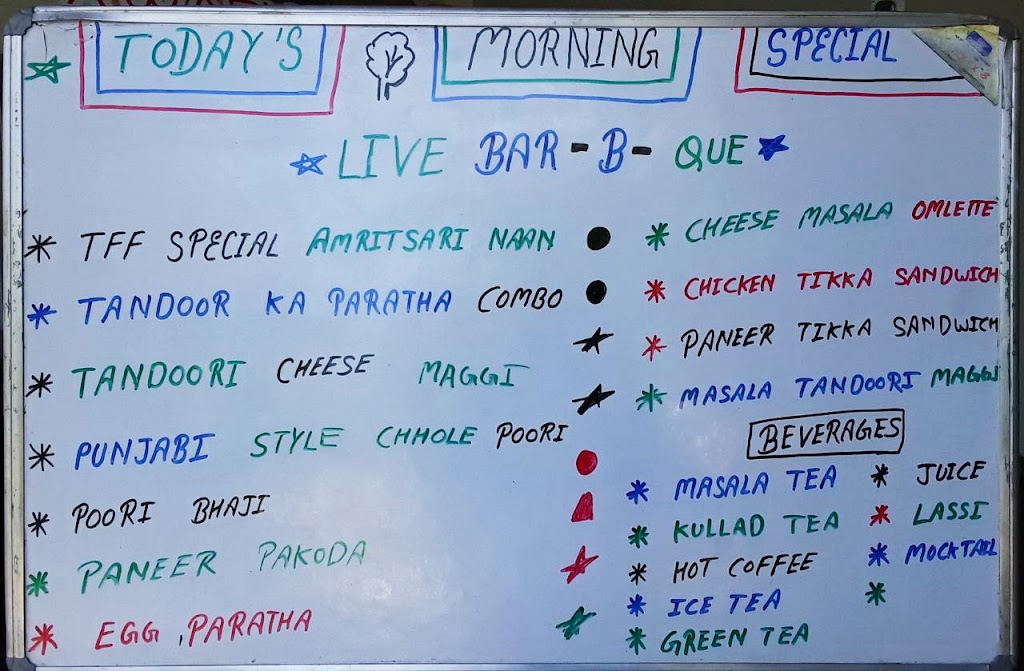 TODAY'S MORNING SPECIAL
LIVE BAR-B-QUE
TFF SPECIAL AMRITSARI NAAN
TANDOOR KA PARATHA COMBO
TANDOORI CHEESE MAGGI
PUNJABI STYLE CHHOLE POORI
POORI BHAJI
PANEER PAKODA
EGG , PARATHA
CHEESE MASALA OMLETTE
CHICKEN TIKKA SANDWICH
PANEER TIKKA SANDWICH
MASALA TANDOORI MAGGI
BEVERAGES
MASALA TEA
KULLAD TEA
HOT COFFEE
ICE TEA
GREEN TEA
JUICE
LASSI
MOCKTAIL